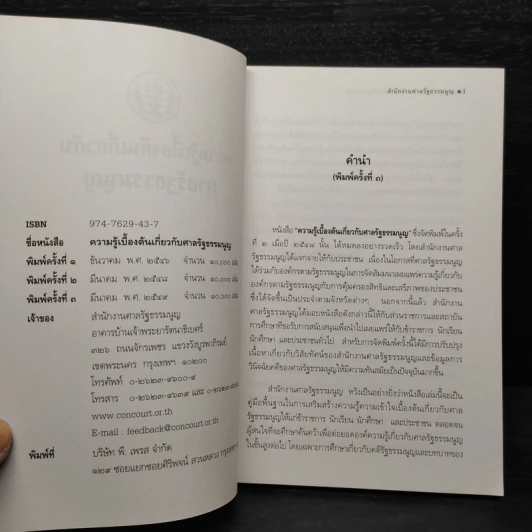 ISBN 974-7629-43-7
ชื่อหนังสือ ความรู้เบื้องต้นเกี่ยวกับศาลรัฐธรรมนูญ
พิมพ์ครั้งที่ ๑ ธันวาคม พ.ศ. ๒๕๔๖ จำนวน ๑๐,๐๐๐ เล่ม
พิมพ์ครั้งที่ ๒ มีนาคม พ.ศ. ๒๕๔๘ จำนวน ๑๐,๐๐๐ เล่ม
พิมพ์ครั้งที่ ๓ มีนาคม พ.ศ. ๒๕๔๙ จำนวน ๑๐,๐๐๐ เล่ม
เจ้าของ สำนักงานศาลรัฐธรรมนูญ
อาคารบ้านเจ้าพระยารัตนาธิเบศร์
๓๒๖ ถนนจักรเพชร แขวงวังบูรพาภิรมย์
เขตพระนคร กรุงเทพฯ ๑๐๒๐๐
โทรศัพท์ ๐-๒๖๒๓-๙๖๐๐-๙
โทรสาร ๐-๒๖๒๓-๙๖๔๓ และ ๐-๒๖๒๓
www.concourt.or.th
E-mail : feedback@concourt.or.th
พิมพ์ที่ บริษัท พี. เพรส จำกัด
๑๒๙ ซอยแยกซอยศิริพจน์ สวนหลวง
สำนักงานศาลรัฐธรรมนูญ
คำนำ
(พิมพ์ครั้งที่ ๓)
หนังสือ "ความรู้เบื้องต้นเกี่ยวกับศาลรัฐธรรมนูญ" ซึ่งจัดพิมพ์ในครั้ง
ที่ ๒ เมื่อปี ๒๕๔๘ นั้น ได้หมดลงอย่างรวดเร็ว โดยสำนักงานศาล
รัฐธรรมนูญได้แจกจ่ายให้กับประชาชน เนื่องในโอกาสที่ศาลรัฐธรรมนูญ
ได้ร่วมกับองค์กรตามรัฐธรรมนูญในการจัดสัมมนาเผยแพร่ความรู้เกี่ยวกับ
องค์กรตามรัฐธรรมนูญกับการคุ้มครองสิทธิและเสรีภาพของประชาชน
ซึ่งได้จัดขึ้นเป็นประจำตามจังหวัดต่างๆ นอกจากนี้แล้ว สำนักงานศาล
รัฐธรรมนูญได้มอบหนังสือดังกล่าวนี้ให้กับส่วนราชการและสถาบัน
การศึกษาที่ขอรับการสนับสนุนเพื่อนำไปเผยแพร่ให้กับข้าราชการ นักเรียน
นักศึกษา และประชาชนทั่วไป สำหรับการจัดพิมพ์ครั้งนี้ได้มีการปรับปรุง
เนื้อหาเกี่ยวกับวิสัยทัศน์ของสำนักงานศาลรัฐธรรมนูญและข้อมูลการ
วินิจฉัยคดีของศาลรัฐธรรมนูญให้มีความทันสมัยเป็นปัจจุบันมากขึ้น
สำนักงานศาลรัฐธรรมนูญ หวังเป็นอย่างยิ่งว่าหนังสือเล่มนี้จะเป็น
คู่มือพื้นฐานในการเสริมสร้างความรู้ความเข้าใจเบื้องต้นเกี่ยวกับศาล
รัฐธรรมนูญให้แก่ข้าราชการ นักเรียน นักศึกษา และประชาชน ตลอดจน
ผู้สนใจที่จะศึกษาค้นคว้าเพื่อต่อยอดองค์ความรู้เกี่ยวกับศาลรัฐธรรมนูญ
ในขั้นสูงต่อไป โดยเฉพาะการศึกษาเกี่ยวกับคดีรัฐธรรมนูญและบทบาทของ